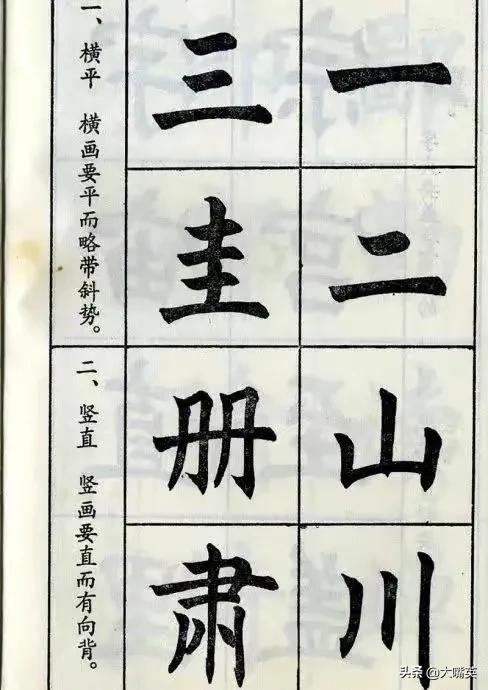 一
二
三
圭
一、横平 横画要平而略带斜势。
山
川
册
肃
二、竖直 竖画要直而有向背。
头条 @大嘴英